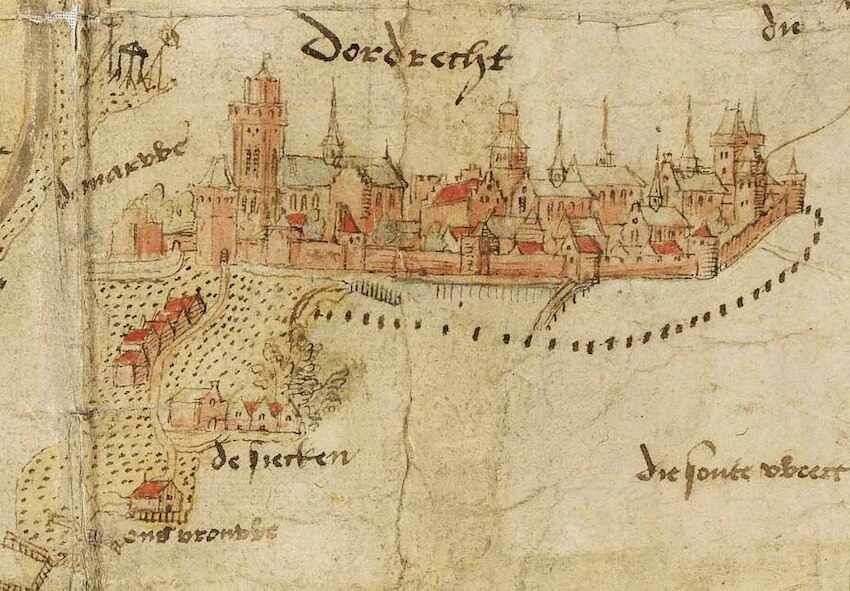 Dordrecht
die
marwe
de siecken
die soute weert
ons vrouwe